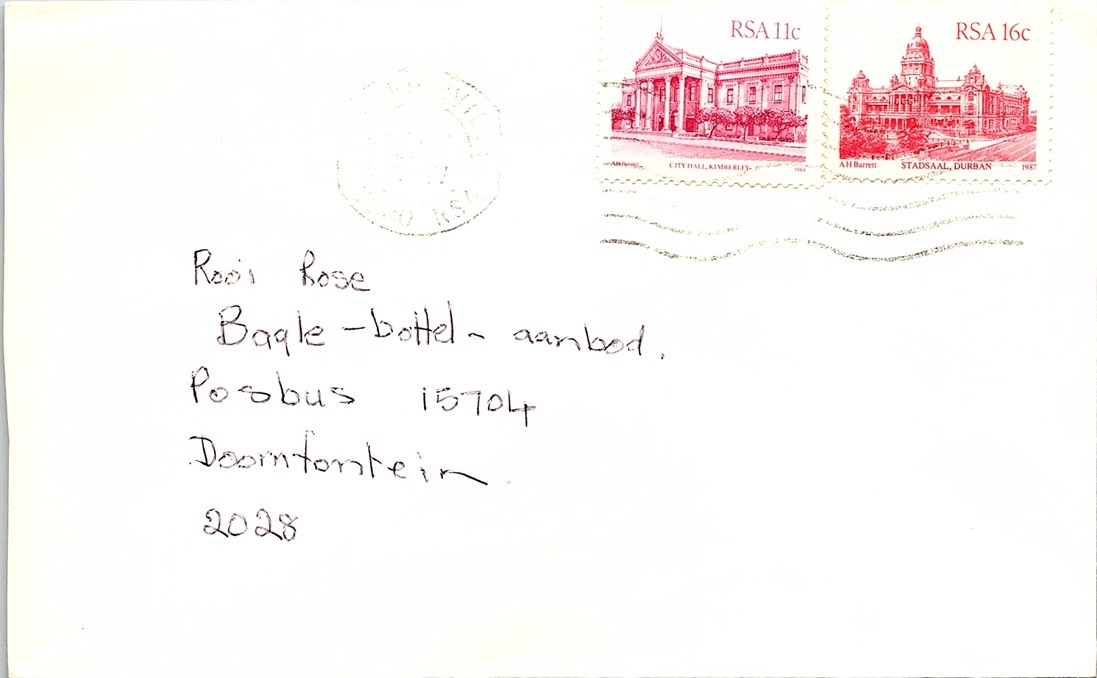 RSA 11c
CITY HALL, KIMBERLEY
1984
RSA 16c
A H Barrett STADSAAL, DURBAN 1987
RSA
Rooi Rose
Baqle-bottel-aanbod.
Posbus 15704
Doornfontein
2028